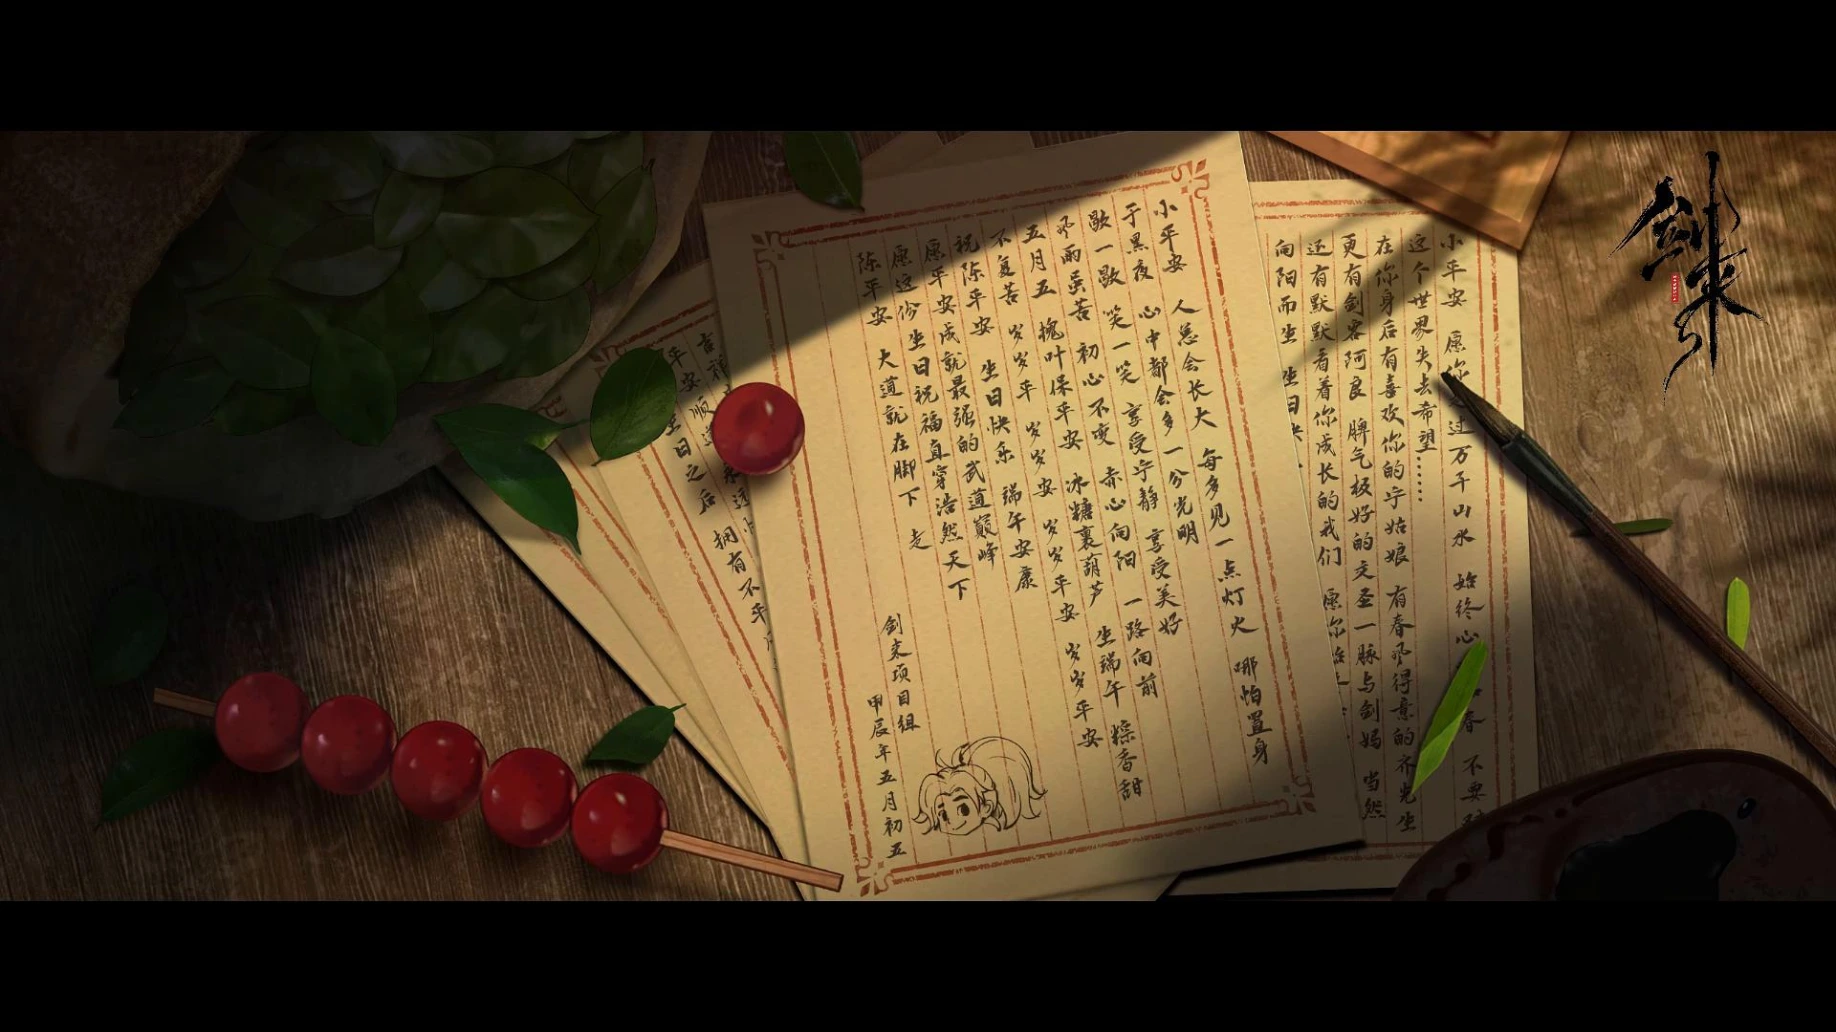 剑来
小平安 愿你 过万千山水 始终心 春 不要
这个世界失去希望……
在你身后有喜欢你的宁姑娘 有春风得意的齐先生
更有剑客阿良 脾气极好的文圣一脉与剑妈 当然
还有默默看着你成长的我们 愿你
向阳而生 生日
小平安 人总会长大 每多见一点灯火 哪怕置身
于黑夜 心中都会多一分光明
歇一歇 笑一笑 享受宁静 享受美好
风雨虽苦 初心不变 赤心向阳 一路向前
五月五 槐叶保平安 冰糖裹葫芦 生端午 粽香甜
不复苦 岁岁平 岁岁安 岁岁平安 岁岁平安
祝陈平安 生日快乐 端午安康
愿平安成就最强的武道巅峰
愿这份生日祝福直穿浩然天下
陈平安 大道就在脚下 走
剑来项目组
甲辰年五月初五
平安 顺
生日之后 拥有不平